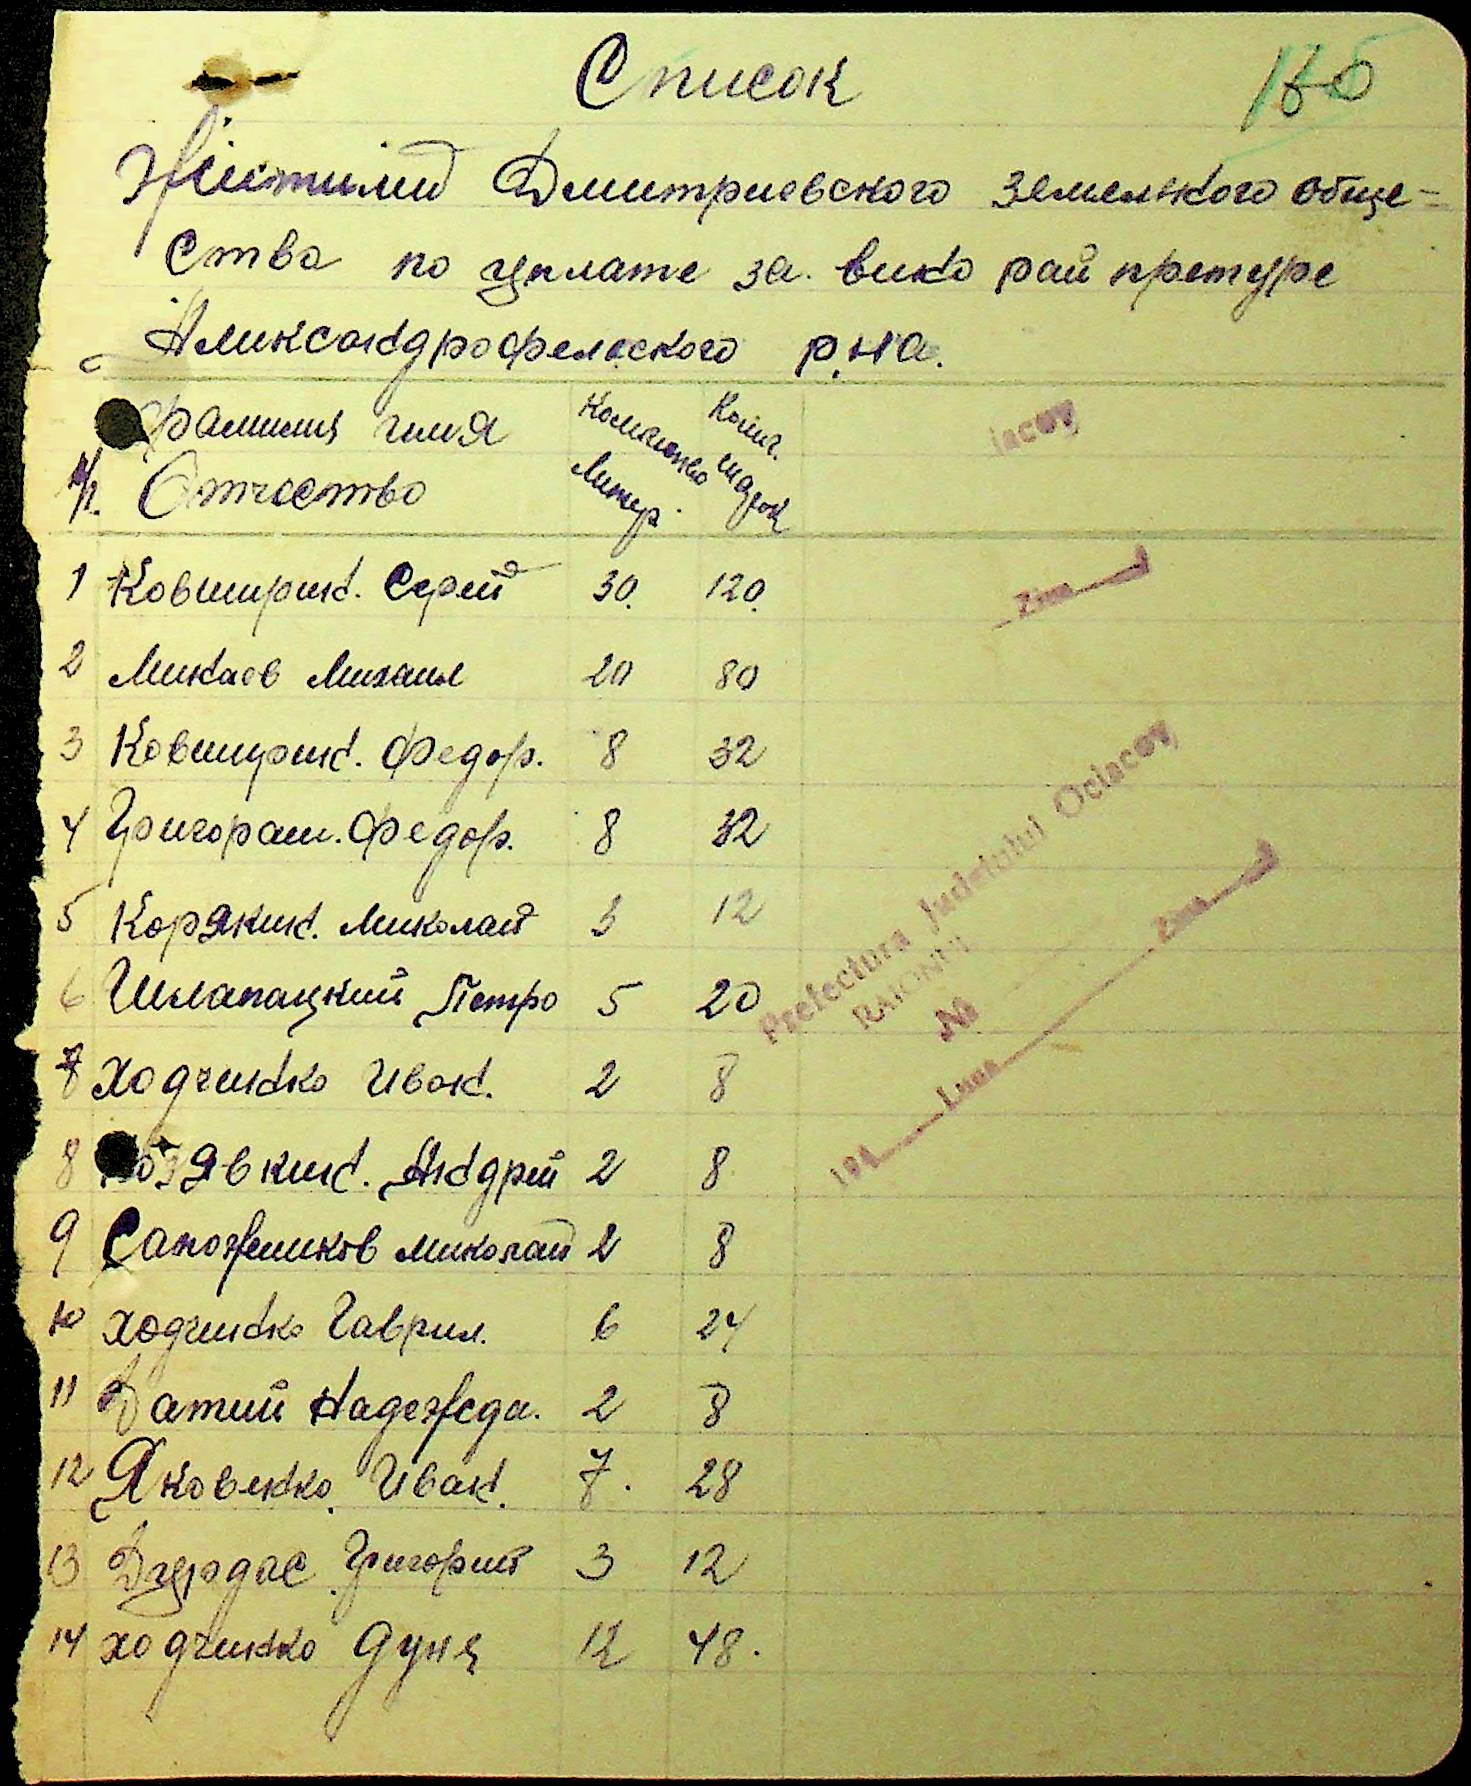 Список
155
Жителей Дмитриевского земельного обще-
ства по уплате за вино рай претуре
Александрофельдского р.на.
Фамилия имя Количество Колич.
п/п. Отчество Литер. марок
1 Ковширин. Сергей 30. 120.
2 Минаев Михаил 20 80
3 Ковширин. Федор. 8 32
4 Григораш. Федор. 8 32
5 Корякин. Миколай 3 12
6 Шлапацкий Петро 5 20
7 Ходченко Иван. 2 8
8 Андрей 2 8
9 Сапожников Миколай 2 8
10 Ходченко Гаврил. 6 24
11 Надежда. 2 8
12 Яковенко Иван. 7. 28
13 Дзурдас Григорий 3 12
14 Ходченко Дуня 12 48.
iacov
Ziua
Prefectura Judetului Ociacov
RAIONUL
№
194 Luna Ziua